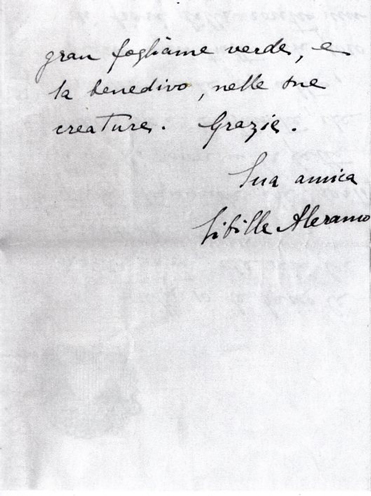 gran fogliame verde, e
la benedivo, nelle sue
creature. Grazie.
Sua amica
Sibilla Aleramo